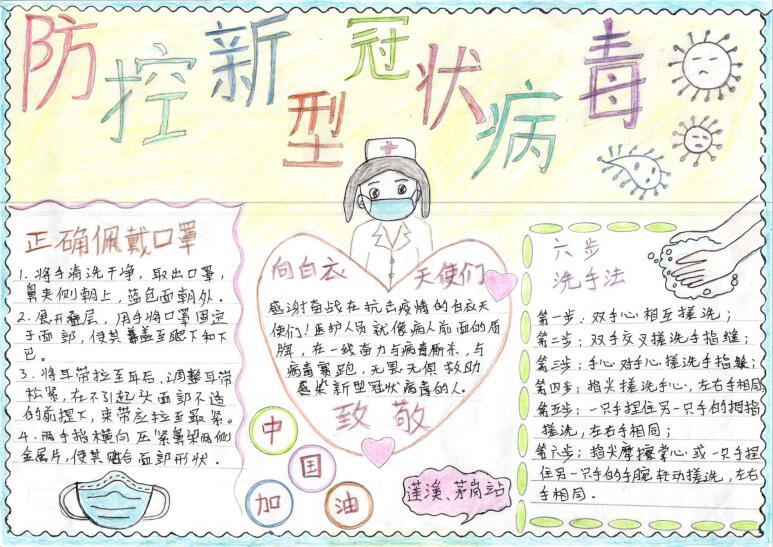 防控新型冠状病毒
正确佩戴口罩
1. 将手清洗干净，取出口罩，
鼻夹侧朝上，蓝色面朝外。
2. 展开叠层，用手将口罩固定
于面部，使其覆盖至眼下和下
巴。
3. 将耳带拉至耳后，调整耳带
松紧，在不引起头面部不适
的前提下，束带应拉至最紧。
4. 两手指横向压紧鼻梁两侧
金属片，使其贴合面部形状。
向白衣 天使们
感谢奋战在抗击疫情的白衣天
使们！医护人员就像病人前面的盾
牌，在一线奋力与病毒厮杀，与
病毒赛跑，无畏无惧救助
感染新型冠状病毒的人。
致敬
中国
加油
莲溪、茅岗站
六步
洗手法
第一步：双手心相互搓洗；
第二步：双手交叉搓洗手指缝；
第三步：手心对手心搓洗手指缝；
第四步：指尖搓洗手心，左右手相同；
第五步：一只手握住另一只手的拇指
搓洗，左右手相同；
第六步：指尖摩擦掌心或一只手握
住另一只手的手腕转动搓洗，左右
手相同。